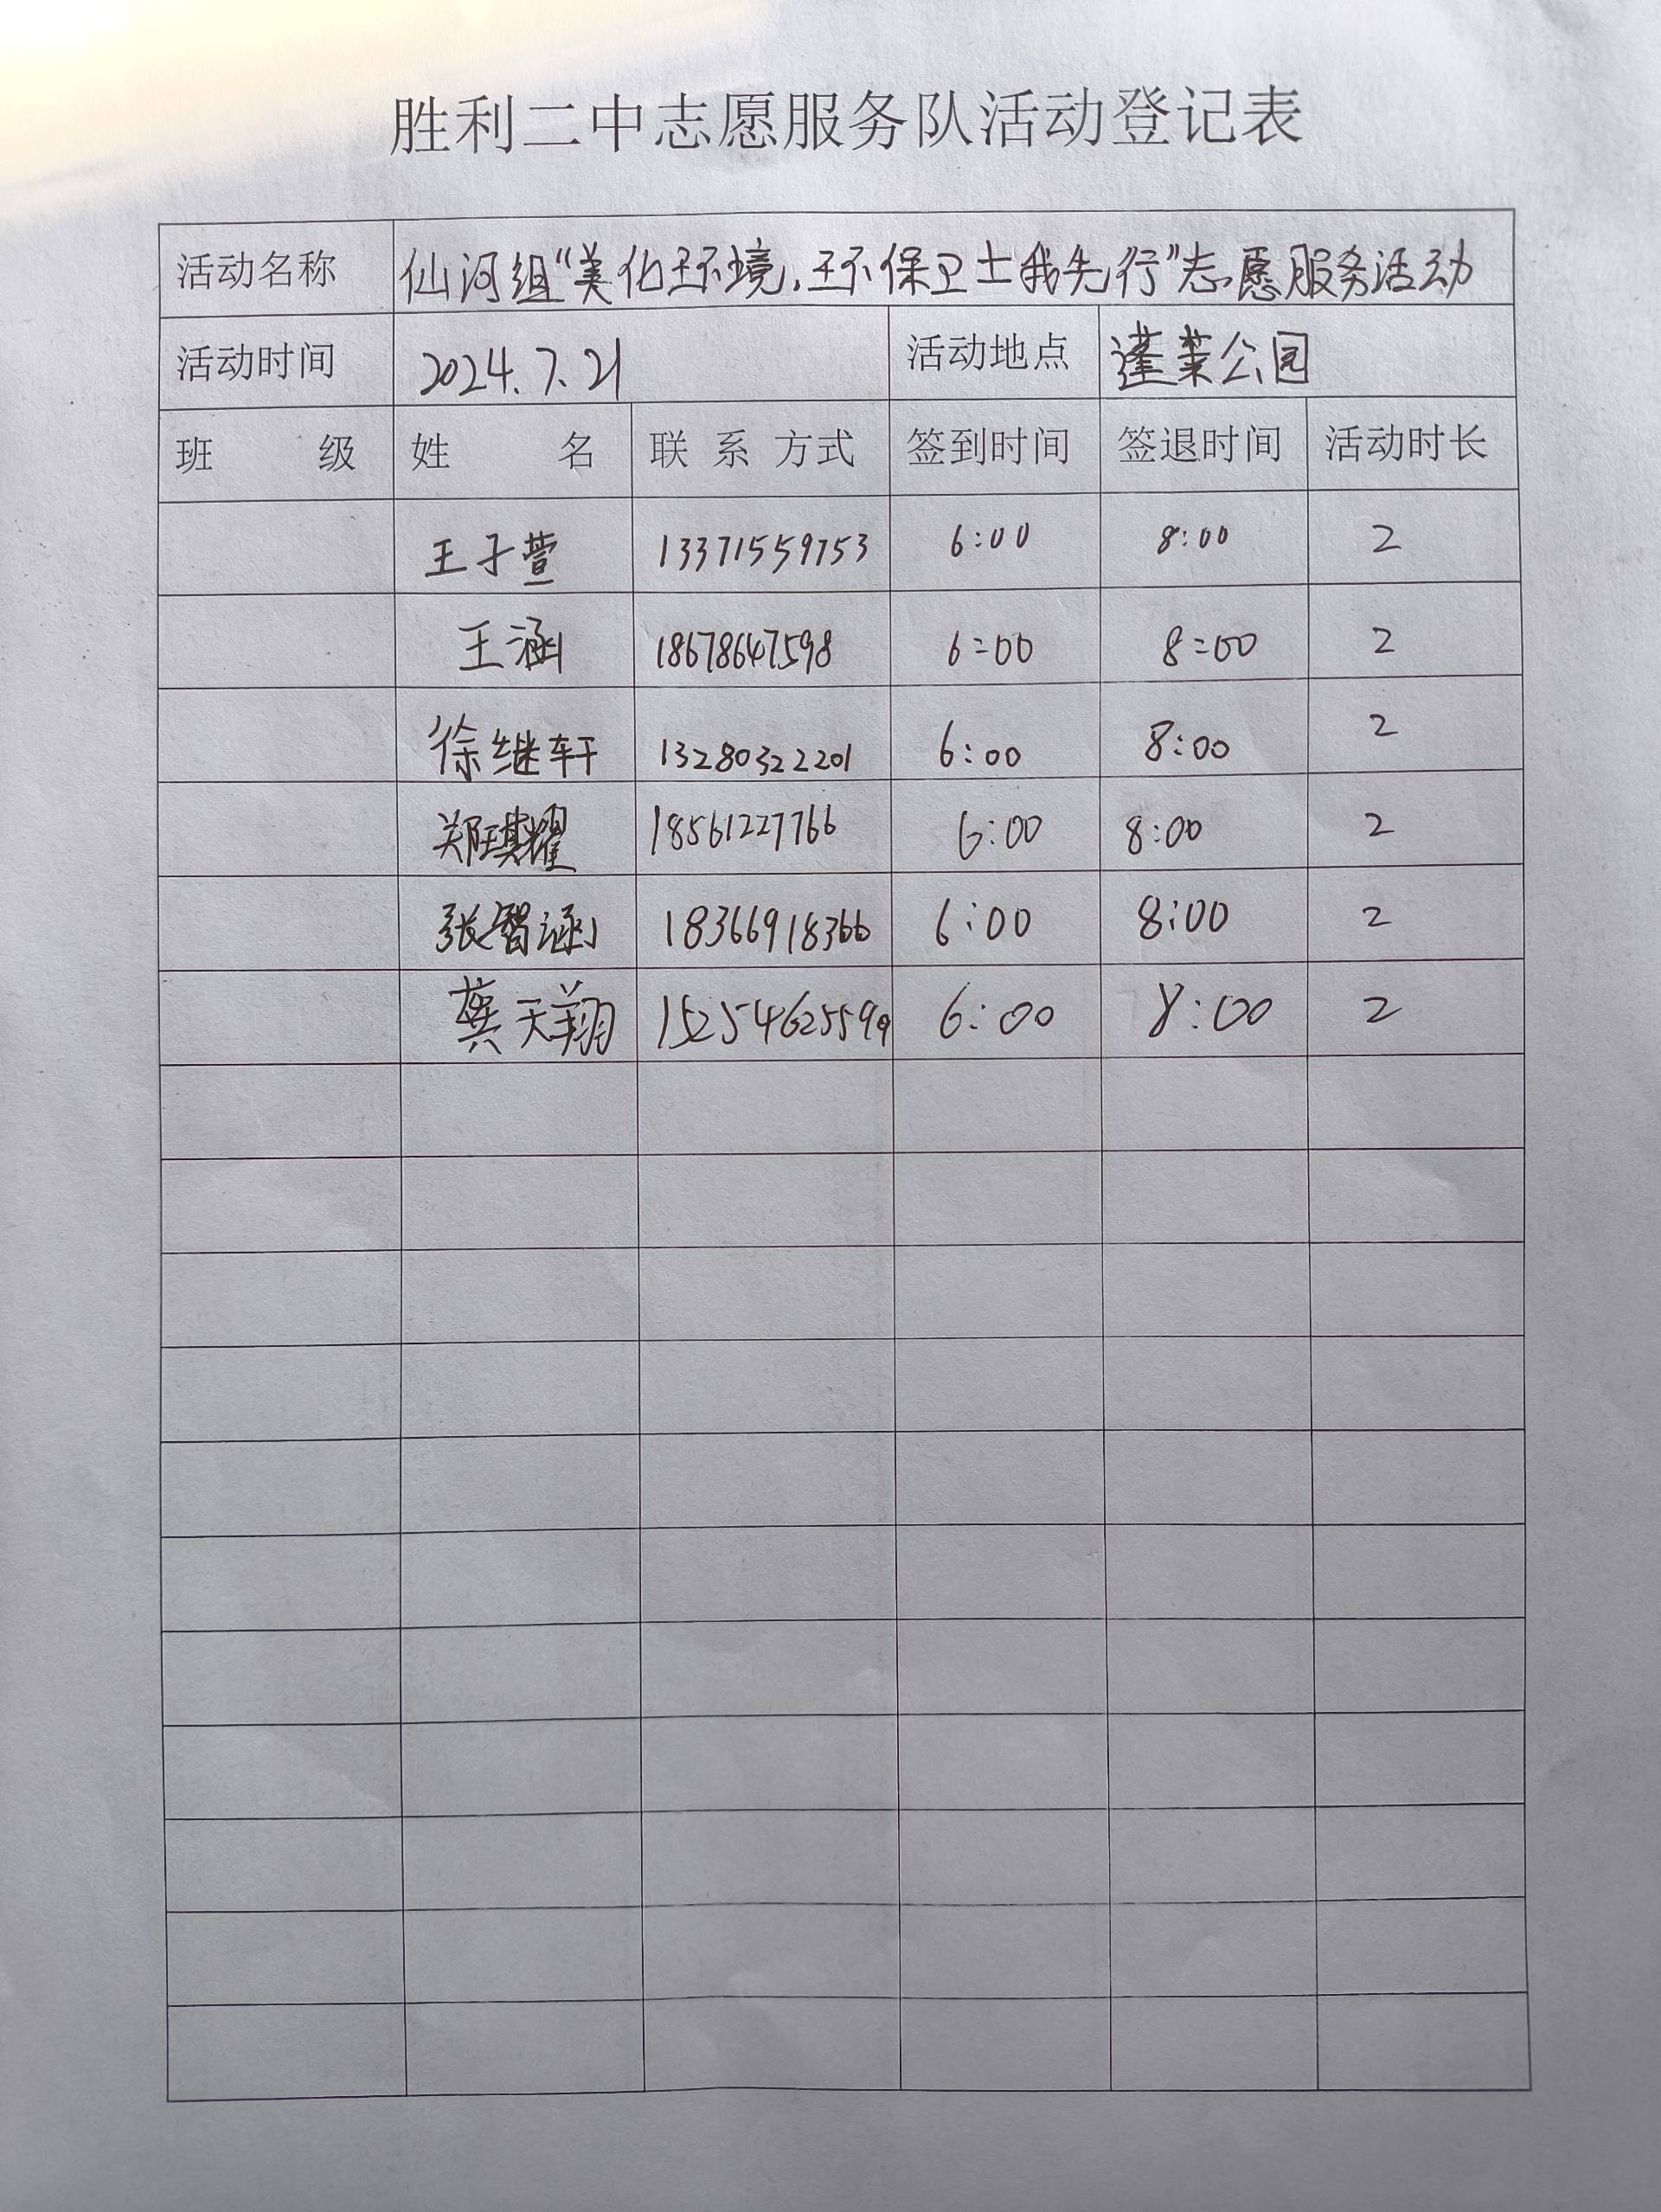 胜利二中志愿服务队活动登记表
活动名称 仙河组“美化环境,环保卫士我先行”志愿服务活动
活动时间 2024.7.21 活动地点 蓬莱公园
班 级 姓 名 联 系 方式 签到时间 签退时间 活动时长
王子萱 13371559753 6:00 8:00 2
王涵 18678647598 6:00 8:00 2
徐继轩 13280322201 6:00 8:00 2
郑琪耀 18561227766 6:00 8:00 2
张智涵 18366918366 6:00 8:00 2
龚天翔 15254625599 6:00 8:00 2